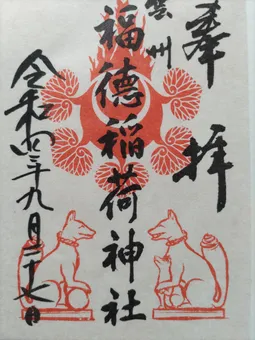 奉拝
雲州
福徳稲荷神社
令和四年九月二十七日